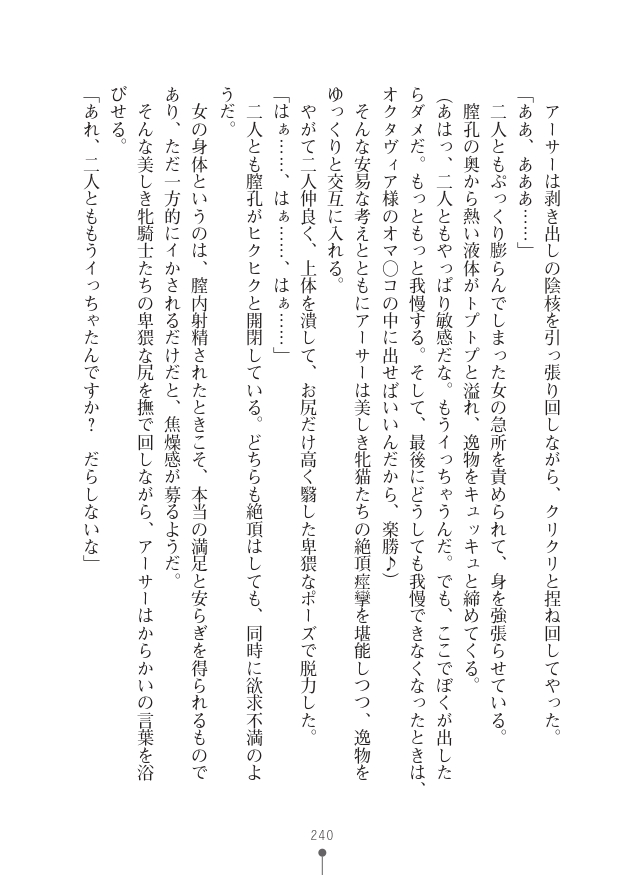 アーサーは剥き出しの陰核を引っ張り回しながら、クリクリと捏ね回してやった。
「ああ、あああ……」
二人ともぷっくり膨らんでしまった女の急所を責められて、身を強張らせている。
膣孔の奥から熱い液体がトプトプと溢れ、逸物をキュッキュと締めてくる。
(あはっ、二人ともやっぱり敏感だな。もうイっちゃうんだ。でも、ここでぼくが出した
らダメだ。もっともっと我慢する。そして、最後にどうしても我慢できなくなったときは、
オクタヴィア様のオマ〇コの中に出せばいいんだから、楽勝♪)
そんな安易な考えとともにアーサーは美しき牝猫たちの絶頂痙攣を堪能しつつ、逸物を
ゆっくりと交互に入れる。
やがて二人仲良く、上体を潰して、お尻だけ高く翳した卑猥なポーズで脱力した。
「はぁ……、はぁ……、はぁ……」
二人とも膣孔がヒクヒクと開閉している。どちらも絶頂はしても、同時に欲求不満のよ
うだ。
女の身体というのは、膣内射精されたときこそ、本当の満足と安らぎを得られるもので
あり、ただ一方的にイかされるだけだと、焦燥感が募るようだ。
そんな美しき牝騎士たちの卑猥な尻を撫で回しながら、アーサーはからかいの言葉を浴
びせる。
「あれ、二人とももうイっちゃたんですか？　だらしないな」
240